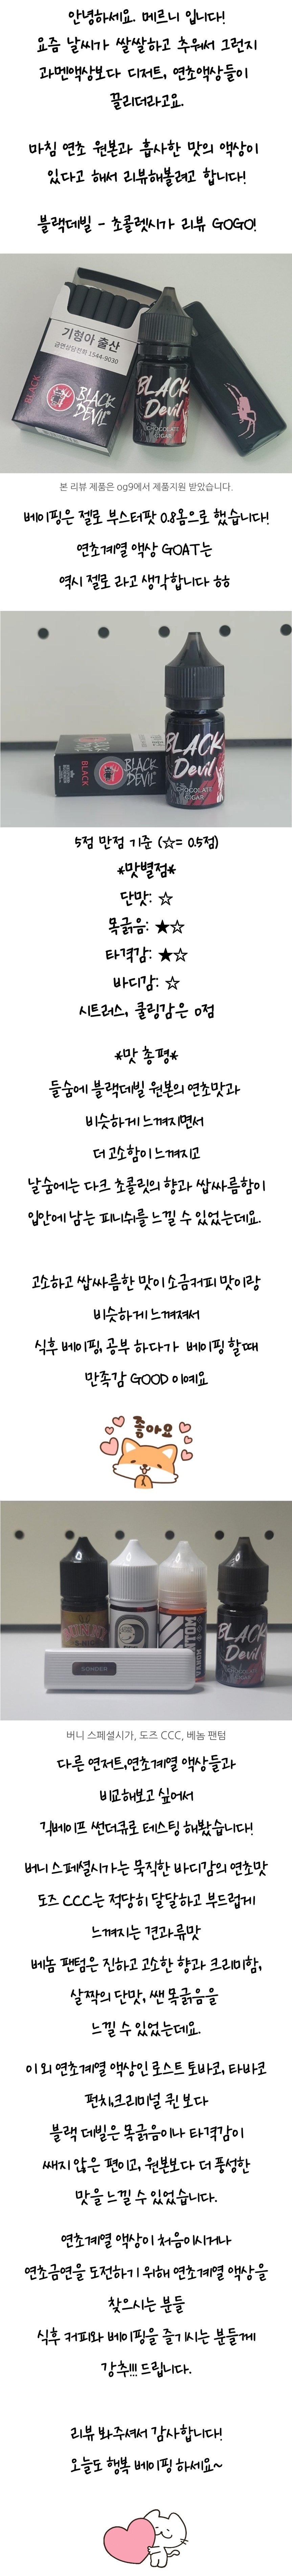 안녕하세요. 메르니 입니다!
요즘 날씨가 쌀쌀하고 추워서 그런지
과멘액상보다 디저트, 연초액상들이
끌리더라고요.
마침 연초 원본과 흡사한 맛의 액상이
있다고 해서 리뷰해볼려고 합니다!
블랙데빌 - 초콜렛시가 리뷰 GOGO!
기형아 출산
금연상담전화 1544-9030
BLACK
BLACK
DEVIL
BLACK
Devil
CHOCOLATE
CIGAR
본 리뷰 제품은 og9에서 제품지원 받았습니다.
베이핑은 젤로 부스터팟 0.8옴으로 했습니다!
연초계열 액상 GOAT는
역시 젤로 라고 생각합니다 ㅎㅎ
BLACK
BLACK
DEVIL
BLACK
Devil
CHOCOLATE
CIGAR
5점 만점 기준 (☆= 0.5점)
*맛별점*
단맛: ☆
목긁음: ★☆
타격감: ★☆
바디감: ☆
시트러스, 쿨링감은 0점
*맛 총평*
들숨에 블랙데빌 원본의 연초맛과
비슷하게 느껴지면서
더 고소함이 느껴지고
날숨에는 다크 초콜릿의 향과 쌉싸름함이
입안에 남는 피니쉬를 느낄 수 있었는데요.
고소하고 쌉싸름한 맛이 소금커피 맛이랑
비슷하게 느껴져서
식후 베이핑, 공부 하다가 베이핑 할때
만족감 GOOD 이예요
좋아요
SOHDER
BLACK
Devil
버니 스페셜시가, 도즈 CCC, 베놈 팬텀
다른 연저트,연초계열 액상들과
비교해보고 싶어서
긱베이프 썬더큐로 테스팅 해봤습니다!
버니 스페셜시가는 묵직한 바디감의 연초맛
도즈 CCC는 적당히 달달하고 부드럽게
느껴지는 견과류맛
베놈 팬텀은 진하고 고소한 향과 크리미함,
살짝의 단맛, 쌘 목긁음을
느낄 수 있었는데요.
이 외 연초계열 액상인 로스트 토바코, 타바코
펀치,크리미널 퀸 보다
블랙 데빌은 목긁음이나 타격감이
쌔지 않은 편이고, 원본보다 더 풍성한
맛을 느낄 수 있었습니다.
연초계열 액상이 처음이시거나
연초금연을 도전하기 위해 연초계열 액상을
찾으시는 분들
식후 커피와 베이핑을 즐기시는 분들께
강추!!! 드립니다.
리뷰 봐주셔서 감사합니다!
오늘도 행복 베이핑 하세요~